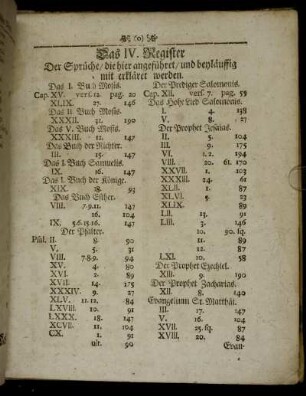 Das IV. Register
Der Sprüche/ die hier angeführet/ und beyläuffig
mit erkläret werden.
Das I. Buch Mosis.
Cap. XV. vers. 12. pag. 20
XLIX. 27. 146
Das II. Buch Mosis.
XXXII. 31. 190
Das V. Buch Mosis.
XXXIII. 12. 147
Das Buch der Richter.
III. 15. 147
Das I. Buch Samuelis.
IX. 16. 147
Das I. Buch der Könige.
XIX. 18. 93
Das Buch Esther.
VIII. 7.9.11. 147
16. 104
IX. 5.6.15.16. 147
Der Psalter.
Psal. II. 8. 90
V. 5. 31
VIII. 7.8.9. 94
XV. 4. 80
XVI. 2. 89
XVII. 14. 175
XXXIV. 9. 27
XLV. 11.12. 84
LXVIII. 10. 91
LXXX. 18. 147
XCVII. 11. 104
CX. 1. 91
ult. 90
Der Prediger Salomonis.
Cap. XII. vers. 7. pag. 59
Das Hohe Lied Salomonis.
I. 4. 138
V. 8. 27
Der Prophet Jesaias.
II. 5. 104
III. 9. 175
VI. 1.2. 194
VIII. 20. 61. 170
XXVII. 1. 103
XXXIII. 24. 61
XLII. 1. 87
XLVI. 5. 23
XLIX. 89
LII. 13. 91
LIII. 3. 146
10. 90. sq.
11. 89
12. 87
LXI. 10. 58
Der Prophet Ezechiel.
XIII. 9. 190
Der Prophet Zacharias.
XII. 8. 140
Evangelium St. Matthäi.
III. 17. 146
V. 16. 104
XVII. 25. sq. 87
XVIII. 20. 84
Evan-